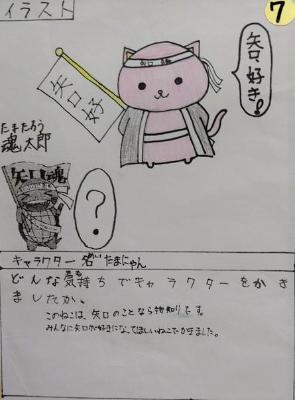 イラスト
7
矢口好き!
矢口魂
矢口好
たまたろう
魂太郎
矢口魂
?
キャラクター名 めい たまにゃん
どんな気持ちでキャラクターをかき
ましたか。
このねこは、矢口のことなら物知りです。
みんなに矢口が好きになってほしいねこでかきました。